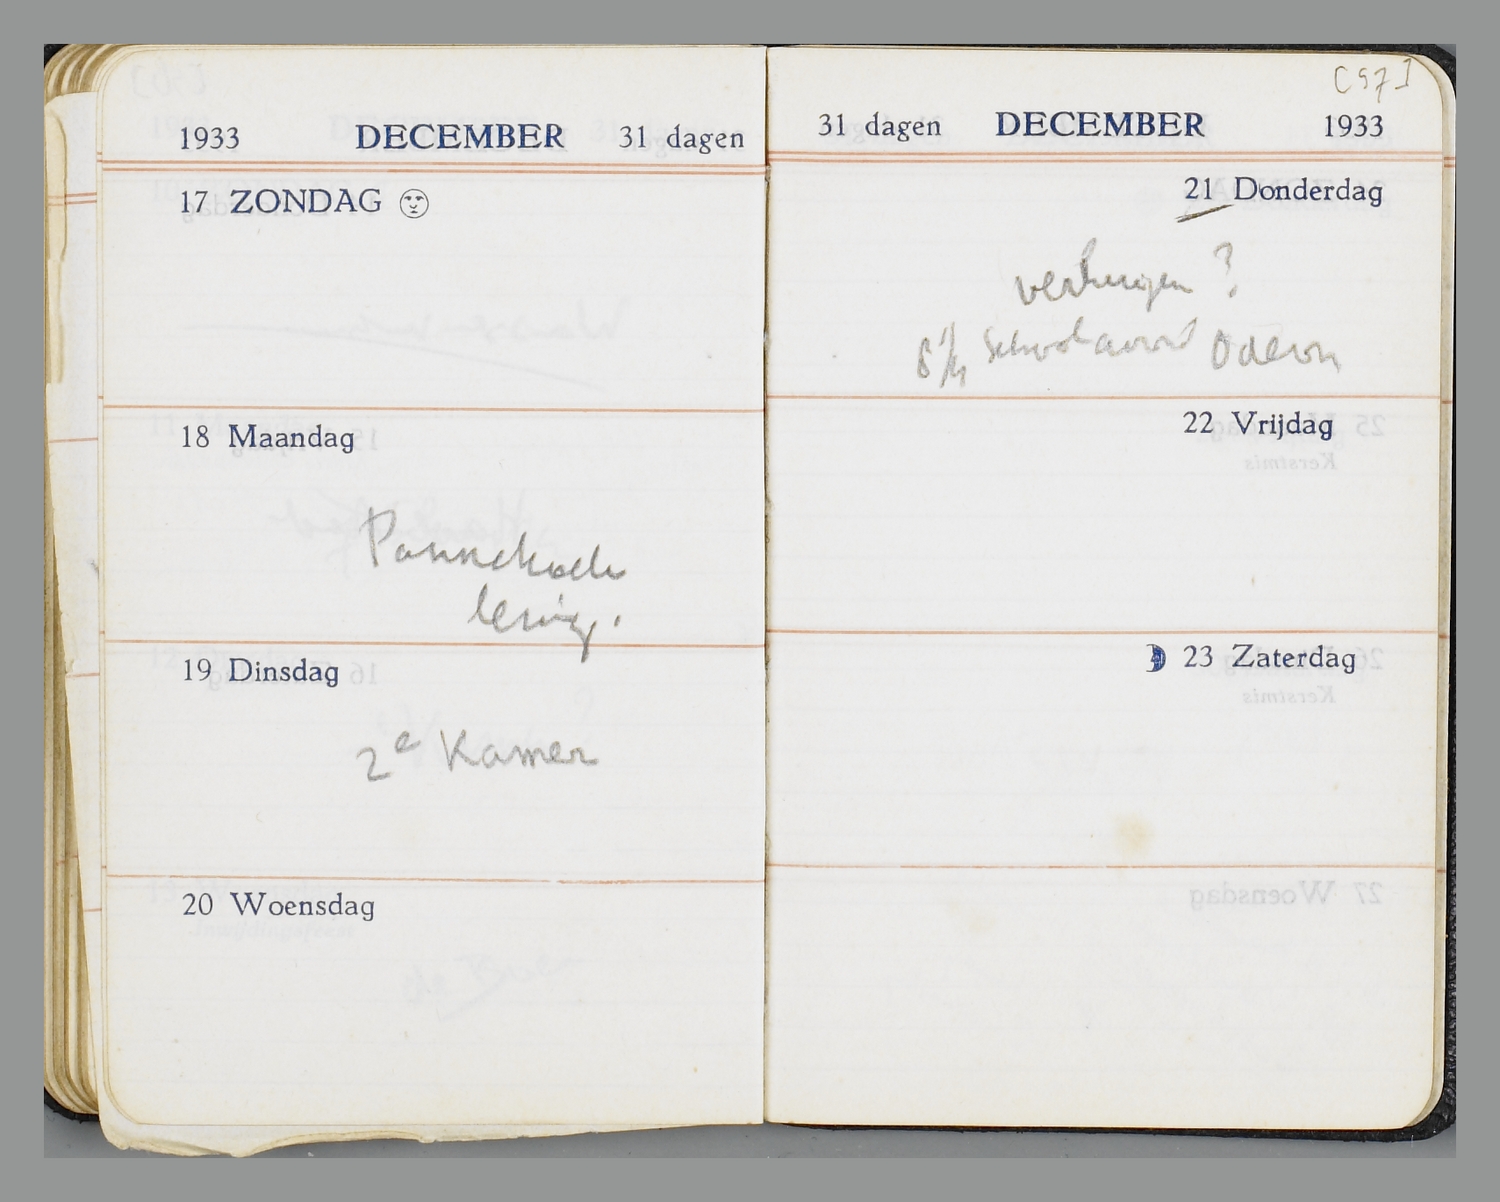 1933 DECEMBER 31 dagen
17 ZONDAG
18 Maandag
lezing.
19 Dinsdag
2e Kamer
20 Woensdag
[97]
31 dagen DECEMBER 1933
21 Donderdag
?
8 1/4 Schoolavond Odeon
22 Vrijdag
23 Zaterdag